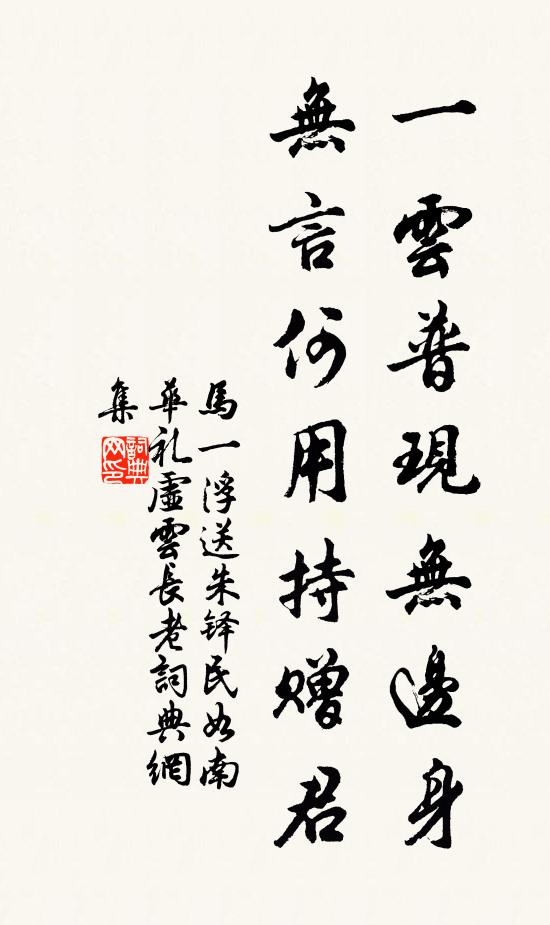 一雲普現無邊身
無言何用持贈君
馬一浮送朱铎民如南
華礼虛雲長老詞典網
集
詞典網印